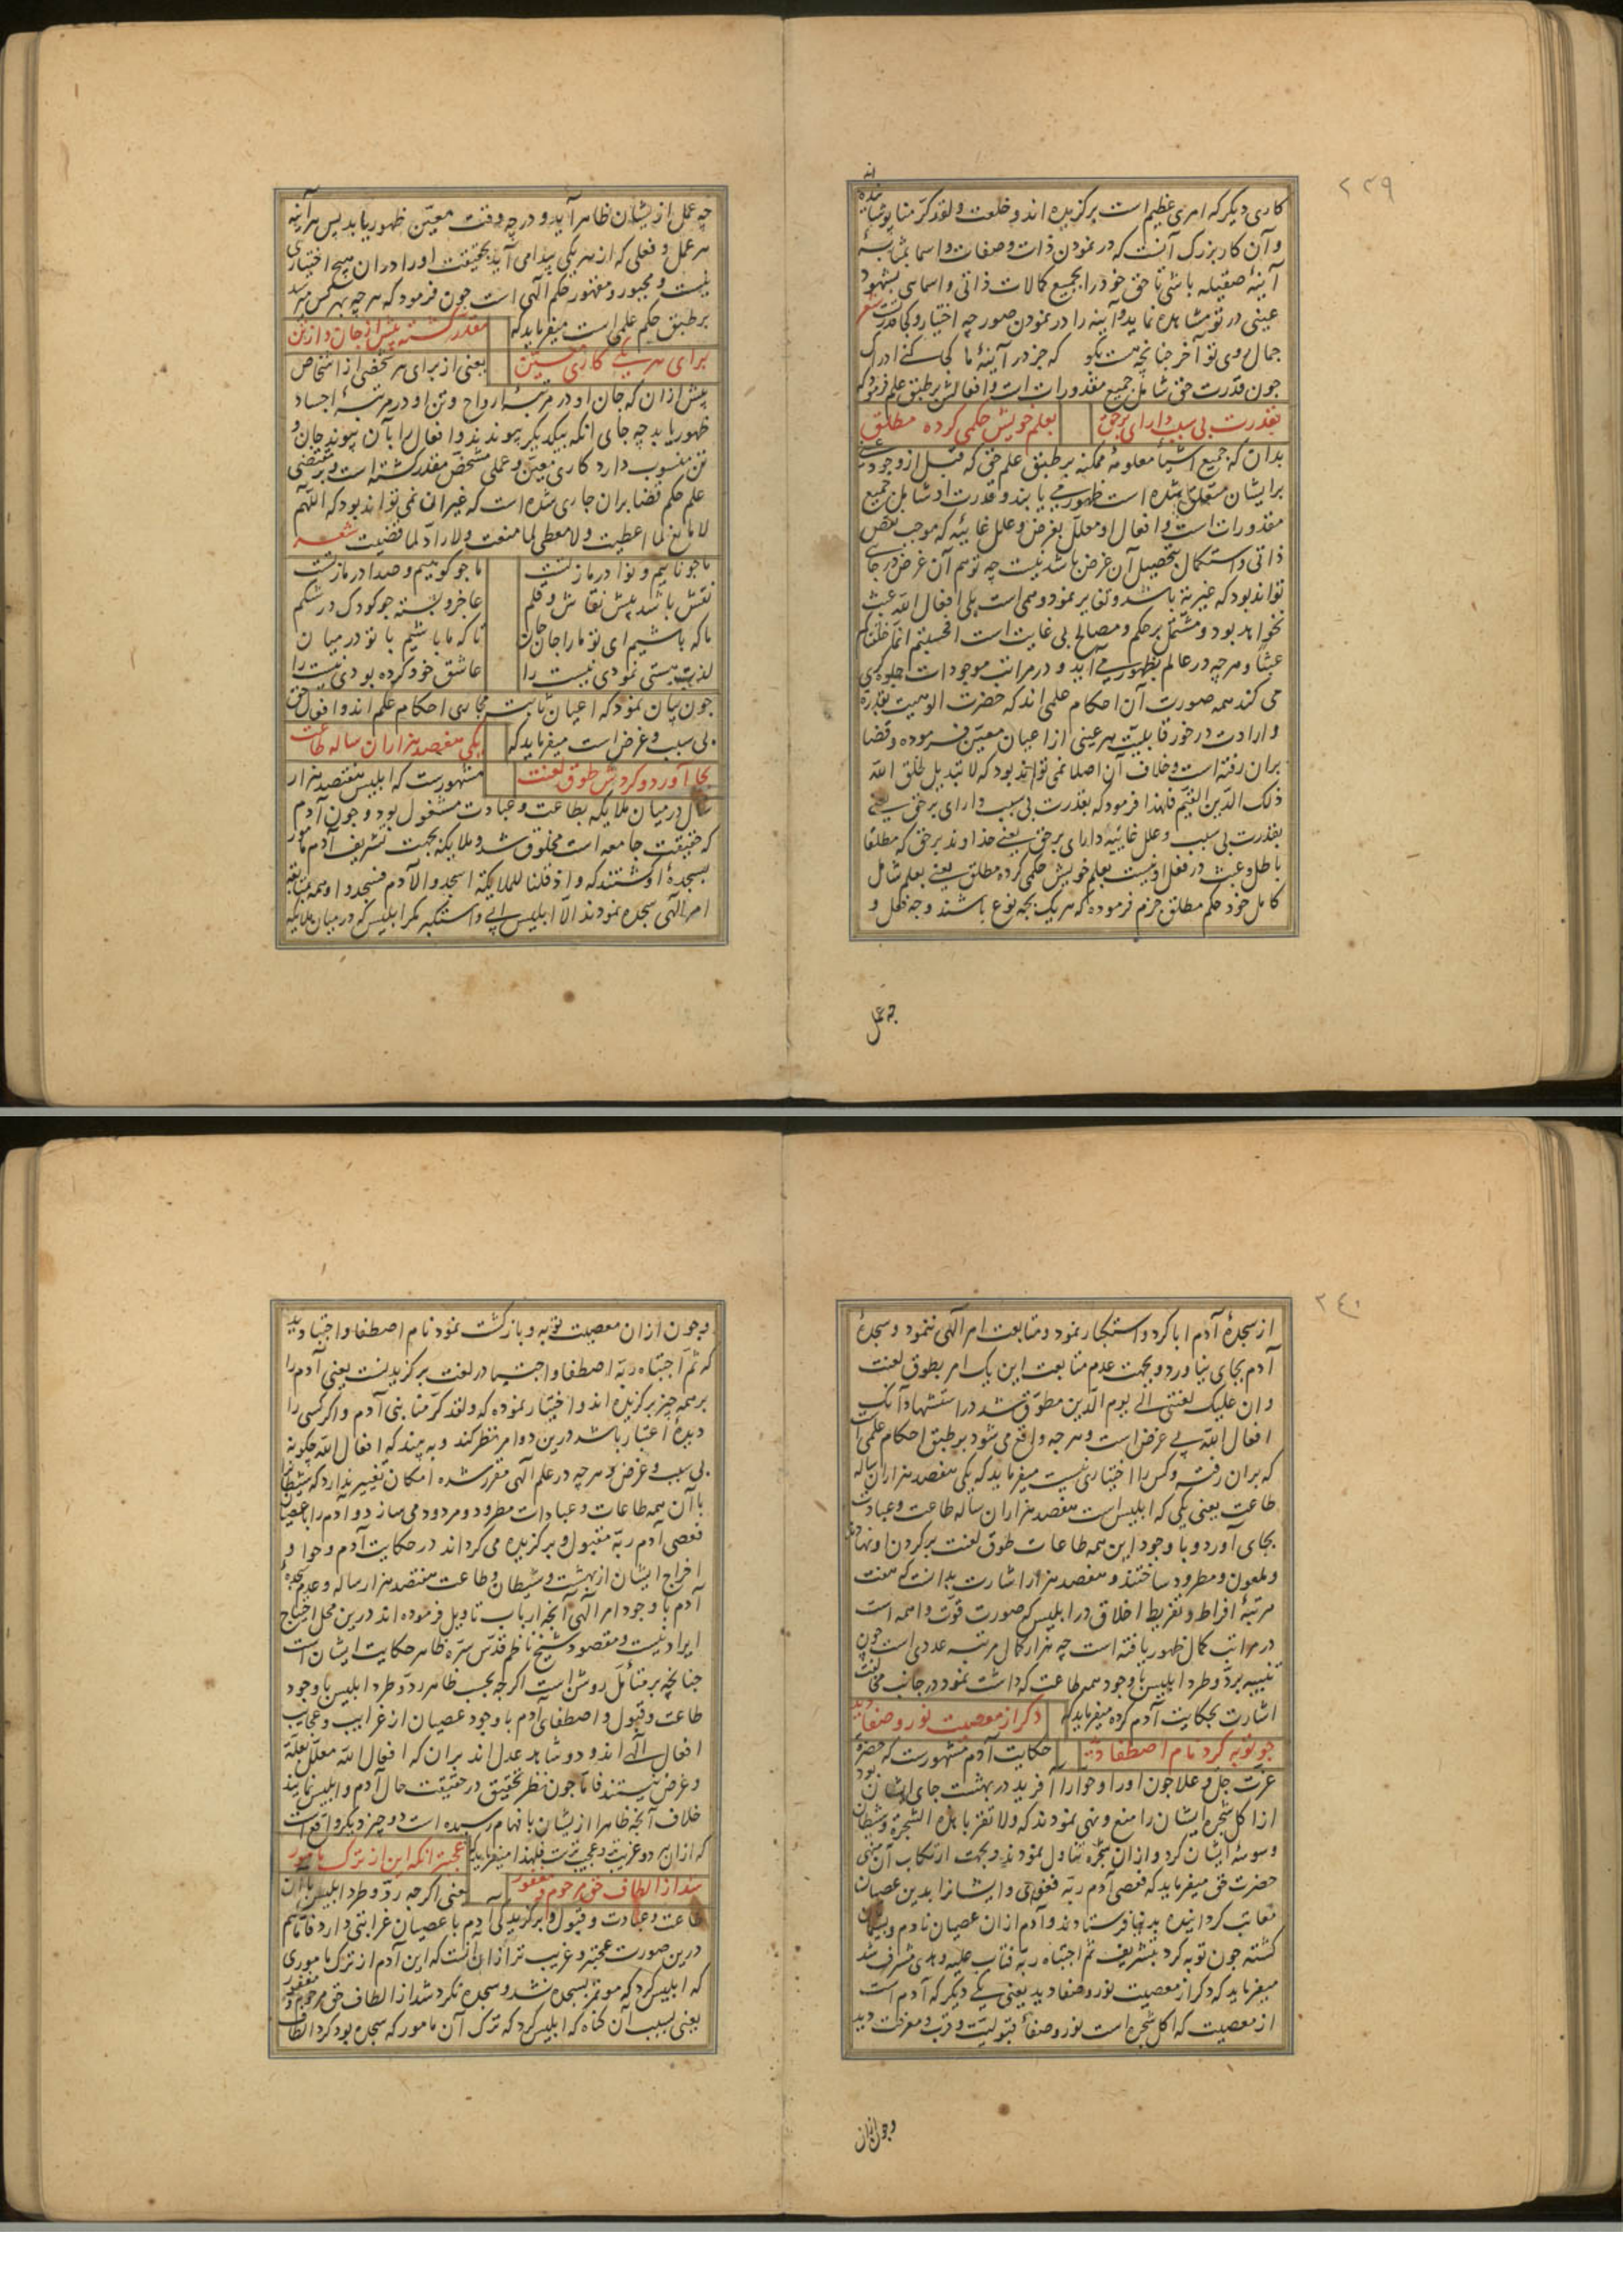 ٢٣٩
کاری دیکر که امری عظیم است برکزیده اند و خلعت و لقد کرمنا پوشانیده اند
و آن کار بزرک آنست که در نمودن ذات و صفات و اسما بمثابه
آینهٔ صقیله باشی تا حق خود را بجمیع کمالات ذاتی و اسمایی بشهود
عینی در تو مشاهده نماید و آینه را در نمودن صور چه اختیار و کجا قدرت شعر
جمال روی تو آخر چنانچه هست بکو که جز در آینهٔ ما کجا کنی ادراک
چون قدرت حق شامل جمیع مقدورات است و افعالش بر طبق علم فرمود که
بقدرت بی سبب دارای برحق بعلم خویش حکمی کرده مطلق
بدان که جمیع اشیا معلومهٔ ممکنه بر طبق علم حق که قبل از وجود عینی
برایشان متعلق شده است ظهور می یابند و قدرت او شامل جمیع
مقدورات است و افعال او معلل بغرض و علل غاییه که موجب نقص
ذاتی و استکمال بتحصیل آن غرض باشد نیست چه توهم آن غرض در جایی
تواند بود که غیریت باشد و تغایر نمود وهمی است بلی افعال الله عبث
نخواهد بود و مشتمل بر حکم و مصالح بی غایت است افحسبتم انما خلقناکم
عبثا و هر چه در عالم بظهور می آید و در مراتب موجودات جلوه کری
می کند همه صورت آن احکام علمی اند که حضرت الوهیت بقدرة
و ارادت در خور قابلیت هر عینی از اعیان معین فرموده و قضا
بران رفته است و خلاف آن اصلا نمی تواند بود که لا تبدیل لخلق الله
ذلک الدین القیم فلهذا فرمود که بقدرت بی سبب دارای برحق یعنی
بقدرت بی سبب و علل غاییه دارای برحق یعنی خداوند برحق که مطلقا
باطل و عبث در فعل او نیست بعلم خویش حکمی کرده مطلق یعنی بعلم شامل
کامل خود حکم مطلق جزم فرموده که هر یک بچه نوع باشند و چه فعل و
چه عمل
چه عمل از ایشان ظاهر آید و در چه وقت معین ظهور یابد پس هر آینه
هر عمل و فعلی که از هر یکی پیدا می آید بحقیقت او را در ان هیچ اختیاری
نیست و مجبور و مقهور حکم الهی است چون فرمود که هر چه بهر کس میرسد
بر طبق حکم علمی است میفرماید که مقدر کشته پیش از جان و از تن
برای هر یکی کاری معین یعنی از برای هر شخصی از اشخاص
پیش ازان که جان او در مرتبهٔ ارواح و تن او در مرتبهٔ اجساد
ظهور یابد چه جای انکه بیکدیکر پیوندند و افعال را بآن پیوند جان و
تن منسوب دارد کاری معین و عملی مشخص مقدر کشته است و بر مقتضی
علم حکم قضا بران جاری شده است که غیر ان نمی تواند بود که اللهم
لا مانع لما اعطیت و لا معطی لما منعت و لا راد لما قضیت شعر
ما چو ناییم و نوا در ما ز تست ما چو کوهیم و صدا در ما ز تست
نقش باشد پیش نقاش و قلم عاجز و بسته چو کودک در شکم
ما که باشیم ای تو ما را جان جان تا که ما باشیم با تو در میان
لذت هستی نمودی نیست را عاشق خود کرده بودی نیست را
چون بیان نمود که اعیان ثابته مجاری احکام علم اند و افعال حق
بی سبب و غرض است میفرماید که یکی هفصد هزاران ساله طاعت
بجا آورد و کردش طوق لعنت مشهورست که ابلیس هفتصد هزار
سال در میان ملایکه بطاعت و عبادت مشغول بود و چون آدم
که حقیقت جامعه است مخلوق شد و ملایکه بجهت تشریف آدم مامور
بسجدهٔ او کشتند که و اذ قلنا للملایکة اسجدوا لآدم فسجدوا و همه بمتابعت
امر الهی سجده نمودند الا ابلیس ابی و استکبر مکر ابلیس که در میان ملایکه
٢٤٠
از سجدهٔ آدم ابا کرد و استکبار نمود و متابعت امر الهی ننمود و سجدهٔ
آدم بجای نیاورد و بجهت عدم متابعت این یک امر بطوق لعنت
و ان علیک لعنتی الی یوم الدین مطوق شد در استشهاد آنک
افعال الله بی غرض است و هر چه واقع می شود بر طبق احکام علمی است
که بران رفته و کس را اختیاری نیست میفرماید که یکی هفصد هزاران ساله
طاعت یعنی یکی که ابلیس است هفصد هزاران ساله طاعت و عبادت
بجای آورد و با وجود این همه طاعات طوق لعنت بر کردن او نهادند
و ملعون و مطرود ساختند و هفصد هزار اشارت بدانست که هفت
مرتبهٔ افراط و تفریط اخلاق در ابلیس که صورت قوت واهمه است
در مراتب کمال ظهور یافته است چه هزار کمال مرتبه عددی است چون
تنبیه برد و طرد ابلیس با وجود همه طاعت که داشت نمود در جانب مخالفت
اشارت بحکایت آدم کرده میفرماید که دکر از معصیت نور و صفا دید
چو توبه کرد نام اصطفا دید حکایت آدم مشهورست که حضرة
عزت جل و علا چون او را و حوا را آفرید در بهشت جای ایشان بود
از اکل شجره ایشان را منع و نهی نمودند که و لا تقربا هذه الشجرة و شیطان
وسوسهٔ ایشان کرد و ازان شجره تناول نمودند و بجهت ارتکاب آن منهی
حضرت حق میفرماید که فعصی آدم ربه فغوی و ایشانرا بدین عصیان
معاتب کردانیده بدنیا فرستادند و آدم از ان عصیان نادم و پشیمان
کشته چون توبه کرد بتشریف ثم اجتباه ربه فتاب علیه و هدی مشرف شد
میفرماید که دکر از معصیت نور و صفا دید یعنی یکی دیکر که آدم است
از معصیت که اکل شجره است نور و صفا قبولیت و قرب و معرفت دید
و چون ازان
و چون ازان معصیت توبه و بازکشت نمود نام اصطفا و اجتبا دید
که ثم اجتباه ربه اصطفا و اجتبا در لغت برکزیدنست یعنی آدم را
بر همه چیز برکزیده اند و اختیار نموده که و لقد کرمنا بنی آدم و اکر کسی را
دیدهٔ اعتبار باشد درین دو امر نظر کند و به بیند که افعال الله چکونه
بی سبب و غرض و هر چه در علم الهی مقرر شده امکان تغییر ندارد که شیطان را
با آن همه طاعات و عبادات مطرود و مردود می سازد و آدم را بعصیان
فعصی آدم ربه مقبول و برکزیده می کرداند در حکایت آدم و حوا و
اخراج ایشان از بهشت و شیطان و طاعت هفتصد هزار ساله و عدم سجدهٔ
آدم با وجود امر الهی آنچه ارباب تاویل فرموده اند درین محل احتیاج
ایراد نیست و مقصود شیخ ناظم قدس سره ظاهر حکایت ایشان است
چنانچه بر متامل روشن است اکرچه بحسب ظاهر رد و طرد ابلیس با وجود
طاعت و قبول و اصطفای آدم با وجود عصیان از غرایب و عجایب
افعال الهی اند و دو شاهد عدل اند بران که افعال الله معلل بعلة
و غرض نیستند فاما چون نظر تحقیق در حقیقت حال آدم و ابلیس نمایند
خلاف آنچه ظاهرا از یشان بافهام رسیده است دو چیز دیکر واقع است
که ازان هر دو غریب و عجیب تر است فلهذا میفرماید که عجبتر انکه این از ترک مامور
شد از الطاف حق مرحوم و مغفور یعنی اکرچه رد و طرد ابلیس با آن
طاعت و عبادت و قبول و برکزیدکی آدم با عصیان غرابتی دارد فاما هم
درین صورت عجبتر و غریب تر ازان آنست که این آدم از ترک ماموری
که ابلیس کرد که موتمر بسجده نشد و سجده نکرد شد از الطاف حق مرحوم و مغفور
یعنی بسبب آن کناه که ابلیس کرد که ترک آن مامور که سجده بود کرد الطاف